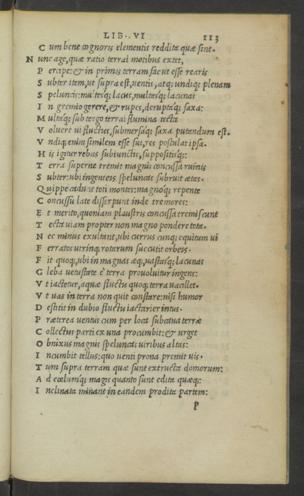 LIB. VI 113
C um bene cognoris elementis reddita quæ sint.
N unc age, quæ ratio terrai motibus extet,
P ercipe: & in primis terram fac ut esse rearis
S ubter item, ut supra est, uentis, atq; undiq; plenam
S peluncis: multosq; lacus, multasq; lacunas
I n gremio gerere, & rupes, deruptaq; saxa:
M ultaq; sub tergo terrai flumina tecta
V oluere ui fluctus, submersaq; saxa putendum est.
V ndiq; enim similem esse sui, res postulat ipsa.
H is igitur rebus subiunctis, suppositisq;:
T erra superne tremit magnis concussa ruinis
S ubter: ubi ingenteis speluncas subruit ætas.
Q uippe cadunt toti montes: magnoq; repente
C oncussu late disserpunt inde tremores:
E t merito, quoniam plaustris concussa tremiscunt
T ecta uiam propter non magno pondere tota.
N ec minus exultant, ubi currus cunq; equitum ui
F erratos utrinq; rotarum succutit orbeis.
F it quoq;, ubi in magnas aq, uastasq; lacunas
G leba uetustate è terra prouoluitur ingens:
V t iactetur, aquæ fluctu quoq; terra uacillet.
V t uas in terra non quit constare: nisi humor
D estitit in dubio fluctu iactarier intus.
P ræterea uentus cum per loca subcaua terræ
C ollectus parti ex una procumbit: & urget
O bnixus magnis speluncas uiribus altas:
I ncumbit tellus: quo uenti prona premit uis.
T um supra terram quæ sunt extructa domorum:
A d cælumq; magis quanto sunt edita quæq;:
I nclinata minant in eandem prodita partem:
P